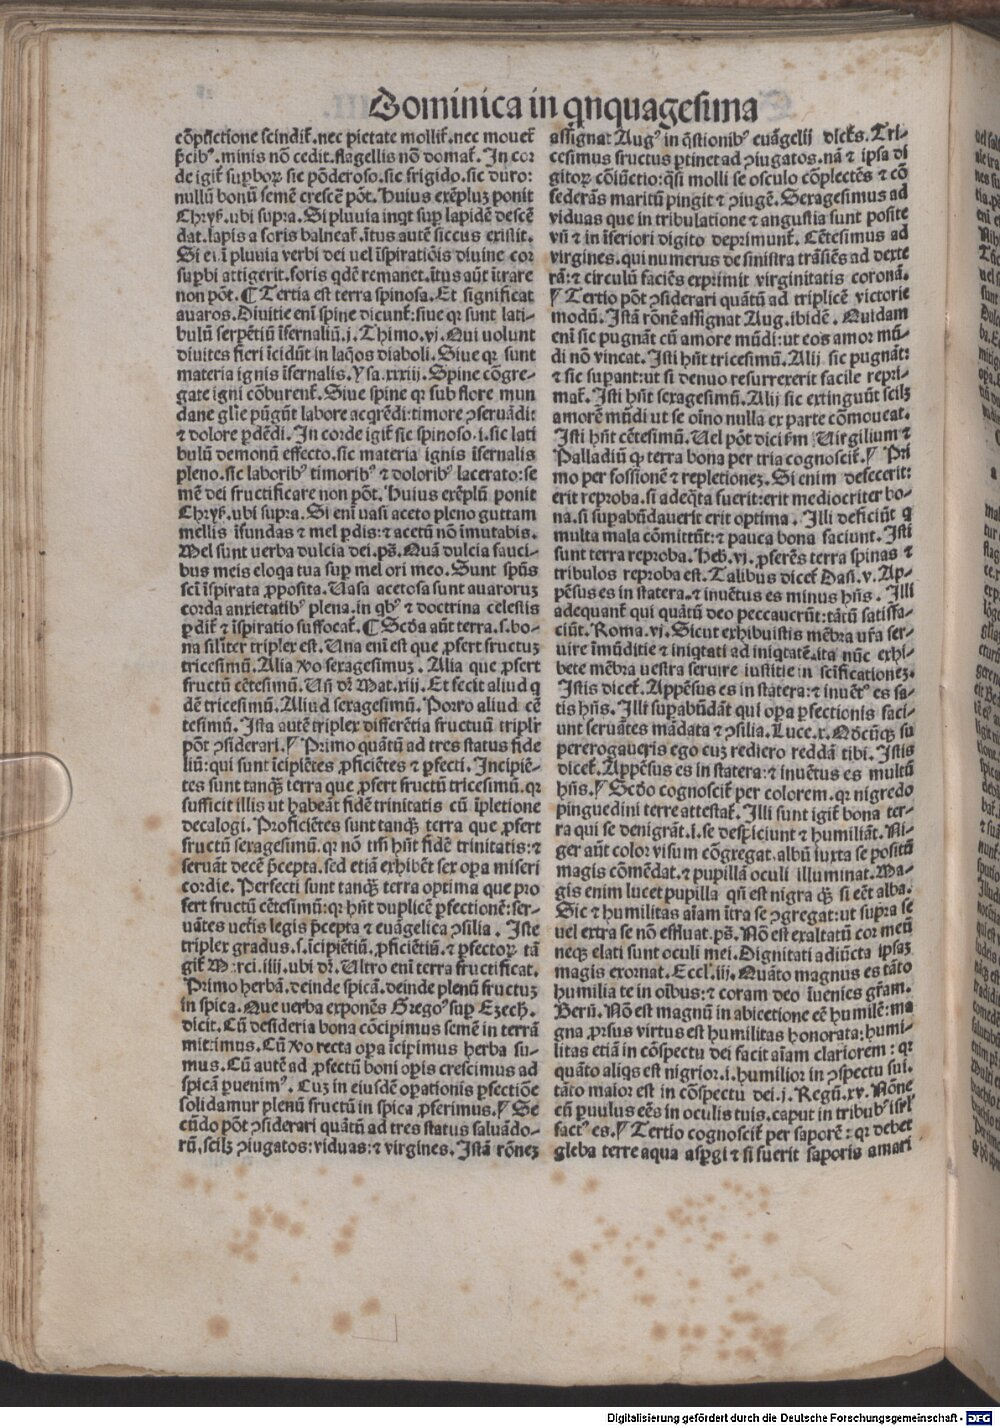 Dominica in qnquagesima
cōpūctione scindit̄. nec pietate mollit̄. nec mouet̄
p̄cibꝰ. minis nō cedit. flagellis nō domat̄. In cor
de igit̄ suꝑboꝝ sic pōderoso. sic frigido. sic duro:
nullū bonū semē crescē pōt. Huius exēpluꝫ ponit
Chryſ. ubi supra. Si pluuia inqt suꝑ lapidē descē
dat. lapis a foris balneat̄. ītus autē siccus existit.
Si ei ī pluuia verbi dei uel īspiratiōis diuine cor
suꝑbi attigerit. foris qdē remanet. ītus aūt ītrare
non pōt. ¶ Tertia est terra spinosa. Et significat
auaros. Diuitie enī spine dicunt̄: siue qꝛ sunt lati-
bulū serpētiū īfernaliū. j. Thimo. vj. Qui uolunt
diuites fieri īcidūt in laq̄os diaboli. Siue qꝛ sunt
materia ignis īfernalis. Ysa. xxxiij. Spine cōgre-
gate igni cōburent̄. Siue spine qꝛ sub flore mun
dane glīe pūgūt labore acqrēdi: timore ꝯseruādi:
⁊ dolore ꝑdēdi. In corde igit̄ sic spinoso. i. sic lati
bulū demonū effecto. sic materia ignis īfernalis
pleno. sic laboribꝰ timoribꝰ ⁊ doloribꝰ lacerato: se
mē dei fructificare non pōt. Huius exēplū ponit
Chryſ. ubi supra. Si enī uasi aceto pleno guttam
mellis īfundas ⁊ mel ꝑdis: ⁊ acetū nō īmutabis.
Mel sunt uerba dulcia dei. ps̄. Quā dulcia fauci-
bus meis eloqa tua suꝑ mel ori meo. Sunt spūs
scī īspirata ꝓposita. Uasa acetosa sunt auaroruꝫ
corda anxietatibꝰ plena. in qbꝰ ⁊ doctrina celestis
ꝑdit̄ ⁊ īspiratio suffocat̄. ¶ Scd̄a aūt terra. s. bo-
na silīter triplex est. Una enī est que ꝓfert fructuꝫ
tricesimū. Alia ꝟo sexagesimuꝫ. Alia que ꝓfert
fructū cētesimū. Uñ dr̄ Mat. xiij. Et fecit aliud q
dē tricesimū. Aliud sexagesimū. Porro aliud cē
tesimū. Ista autē triplex differētia fructuū triplr̄
pōt ꝯsiderari. ¶ Primo quātū ad tres status fide
liū: qui sunt īcipiētes ꝓficiētes ⁊ ꝑfecti. Incipiē-
tes sunt tanqꝫ terra que ꝓfert fructū tricesimū. qꝛ
sufficit illis ut habeāt fidē trinitatis cū īpletione
decalogi. Proficiētes sunt tanqꝫ terra que ꝓfert
fructū sexagesimū. qꝛ nō tm̄ hn̄t fidē trinitatis: ⁊
seruāt decē p̄cepta. sed etiā exhibēt sex oꝑa miseri
cordie. Perfecti sunt tanqꝫ terra optima que pro
fert fructū cētesimū: qꝛ hn̄t duplicē ꝑfectionē: ser-
uātes uet̄is legis p̄cepta ⁊ euāgelica ꝯsilia. Iste
triplex gradus. s. īcipiētiū. ꝓficiētiū. ⁊ ꝑfectoꝝ tā
git̄ Marci. iiij. ubi dr̄. Ultro enī terra fructificat.
Primo herbā. deinde spicā. deinde plenū fructuꝫ
in spica. Que uerba exponēs Gregoꝰ suꝑ Ezech.
dicit. Cū desideria bona cōcipimus semē in terrā
mittimus. Cū ꝟo recta oꝑa īcipimus herba su-
mus. Cū autē ad ꝓfectū boni oꝑis crescimus ad
spicā ꝑuenimꝰ. Cuꝫ in eiusdē oꝑationis ꝑfectiōe
solidamur plenū fructū in spica ꝓferimus. ¶ Se
cūdo pōt ꝯsiderari quātū ad tres status saluādo-
rū. scilꝫ ꝯiugatos: viduas: ⁊ virgines. Istā rōneꝫ
assignat Augꝰ in q̄stionibꝰ euāgelij dicēs. Tri-
cesimus fructus ꝑtinet ad ꝯiugatos. nā ⁊ ipsa di
gitoꝝ cōiūctio: q̄si molli se osculo cōplectēs ⁊ cō
federās maritū pingit ⁊ ꝯiugē. Sexagesimus ad
viduas que in tribulatione ⁊ angustia sunt posite
vñ ⁊ in īferiori digito deprimunt̄. Cētesimus ad
virgines. qui numerus de sinistra trāsiēs ad dexte
rā: ⁊ circulū faciēs exprimit virginitatis coronā.
¶ Tertio pōt ꝯsiderari quātū ad triplicē victorie
modū. Istā rōnē assignat Aug. ibidē. Quidam
enī sic pugnāt cū amore mūdi: ut eos amor mū-
di nō vincat. Isti hn̄t tricesimū. Alij sic pugnāt:
⁊ sic suꝑant: ut si denuo resurrexerit facile repri-
mat̄. Isti hn̄t sexagesimū. Alij sic extinguūt scilꝫ
amorē mūdi ut se oīno nulla ex parte cōmoueat.
Isti hn̄t cētesimū. Uel pōt dici km̄ Uirgilium ⁊
Palladiū ꝙ terra bona per tria cognoscit̄. ¶ Pri
mo per fossionē ⁊ repletioneꝫ. Si enim defecerit:
erit reproba. si adeq̄ta fuerit: erit mediocriter bo-
na. si suꝑabūdauerit erit optima. Illi deficiūt q
multa mala cōmittūt: ⁊ pauca bona faciunt. Isti
sunt terra reproba. Heb̄. vj. ꝓferēs terra spinas ⁊
tribulos reproba est. Talibus dicet̄ Dañ. v. Ap-
pēsus es in statera. ⁊ inuētus es minus hn̄s. Illi
adequant̄ qui quātū deo peccauerūt: tātū satisfa-
ciūt. Roma. vj. Sicut exhibuistis mēbra ur̄a ser-
uire īmūditie ⁊ iniqtati ad iniqtatē. ita nūc exhi-
bete mēbra uestra seruire iustitie in scīficationeꝫ.
Istis dicet̄. Appēsus es in statera: ⁊ inuētꝰ es sa-
tis hn̄s. Illi suꝑabūdāt qui oꝑa ꝑfectionis faci-
unt seruātes mādata ⁊ ꝯsilia. Luce. x. Qd̄cūqꝫ su
pererogaueris ego cuꝫ rediero reddā tibi. Istis
dicet̄. Appēsus es in statera: ⁊ inuētus es multū
hn̄s. ¶ Scd̄o cognoscit̄ per colorem. qꝛ nigredo
pinguedini terre attestat̄. Illi sunt igit̄ bona ter-
ra qui se denigrāt. i. se despiciunt ⁊ humiliāt. Ni-
ger aūt color visum cōgregat. albū iuxta se positū
magis cōmēdat. ⁊ pupillā oculi illuminat. Ma-
gis enim lucet pupilla qn̄ est nigra qꝫ si eēt alba.
Sic ⁊ humilitas aīam ītra se ꝯgregat: ut supra se
uel extra se nō effluat. ps̄. Nō est exaltatū cor meū
neqꝫ elati sunt oculi mei. Dignitati adiūcta ipsaꝫ
magis exornat. Eccl̄. iij. Quāto magnus es tāto
humilia te in oībus: ⁊ coram deo īuenies gr̄am.
Berñ. Nō est magnū in abiectione eē humilē: ma
gna ꝓrsus virtus est humilitas honorata: humi-
litas etiā in cōspectu dei facit aīam clariorem: qꝛ
quāto aliqs est nigrior. i. humilior in ꝯspectu sui.
tāto maior est in cōspectu dei. j. Regū. xv. Nōne
cū ꝑuulus eēs in oculis tuis. caput in tribubꝰ isrl̄
factꝰ es. ¶ Tertio cognoscit̄ per saporē: qꝛ debet
gleba terre aqua asꝑgi ⁊ si fuerit saporis amari
Digitalisierung gefördert durch die Deutsche Forschungsgemeinschaft - DFG